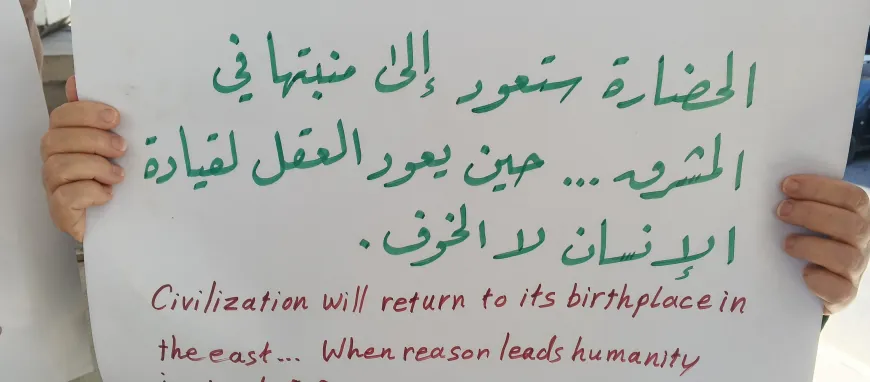 الحضارة ستعود إلى منبتها في
المشرق ... حين يعود العقل لقيادة
الإنسان لا الخوف.
Civilization will return to its birthplace in
the east... When reason leads humanity